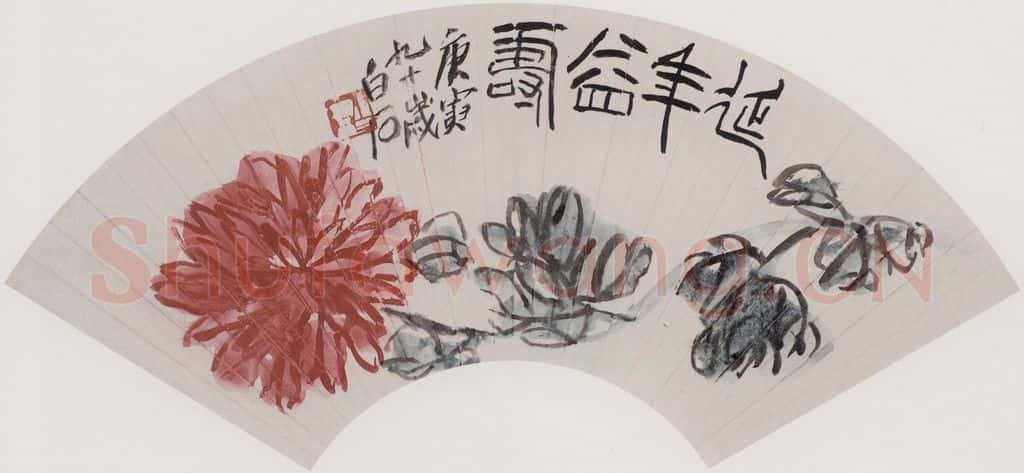 延年益壽
庚寅
九十歲
白石
Shufawang.CN